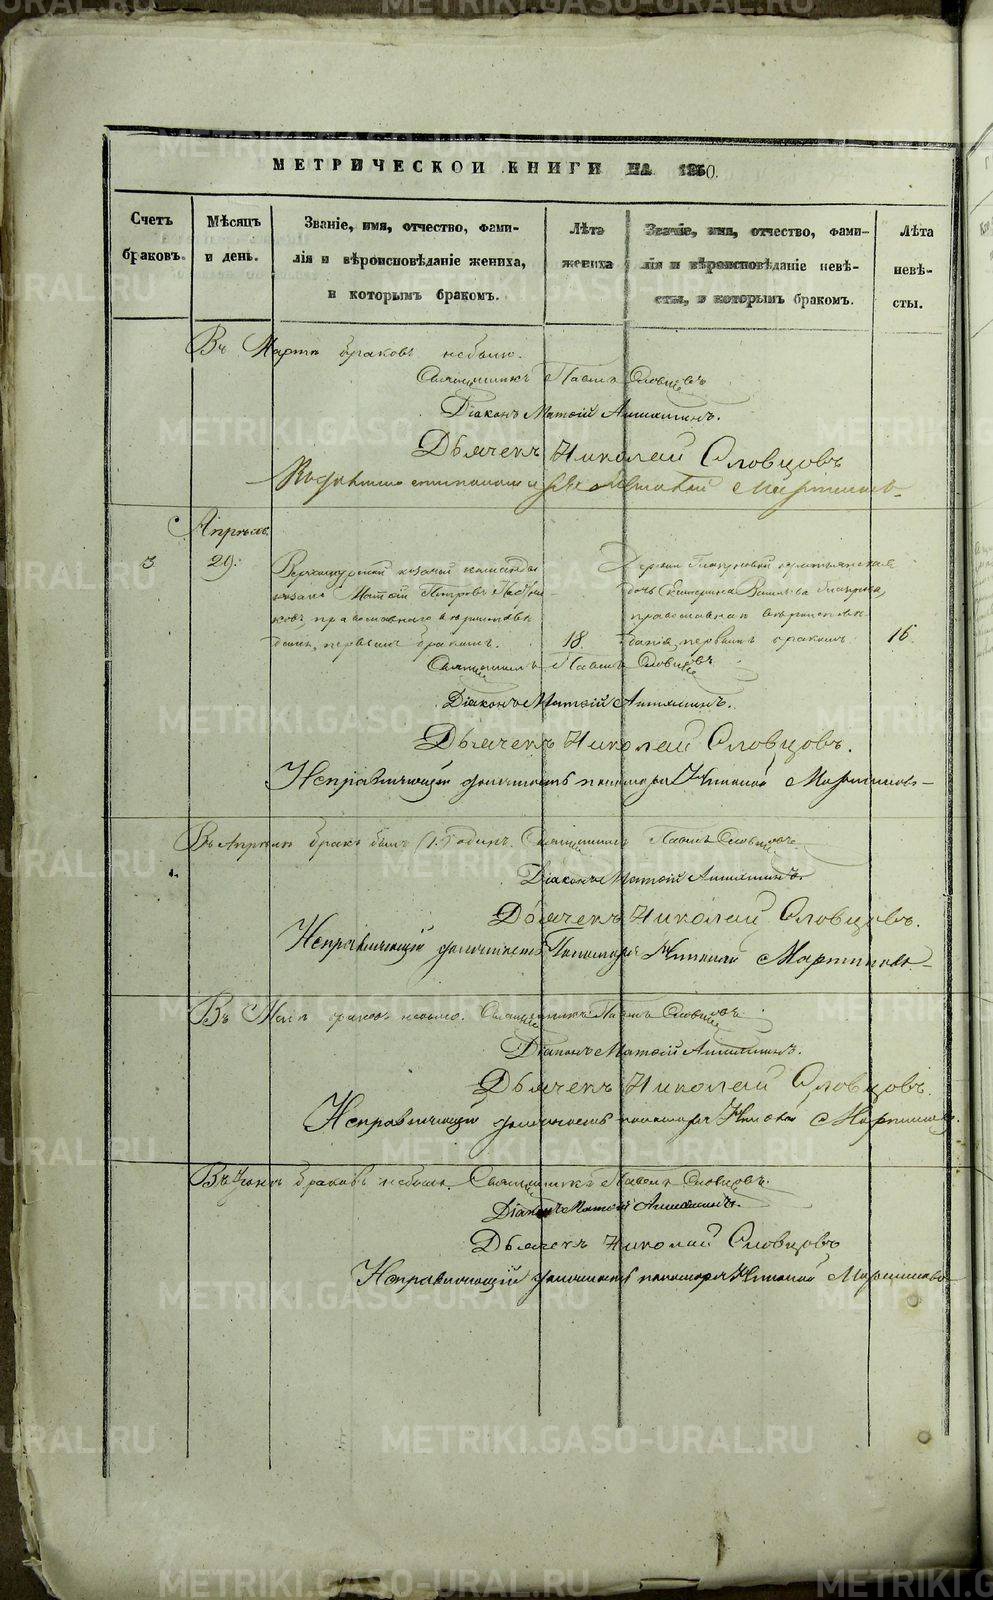 МЕТРИЧЕСКОЙ КНИГИ НА 1860.
Счетъ браковъ.
Мѣсяцъ и день.
Званіе, имя, отчество, фами-
лія и вѣроисповѣданіе жениха,
и которымъ бракомъ.
Лѣта жениха
Званіе, имя, отчество, фами-
лія и вѣроисповѣданіе невѣ-
сты, и которымъ бракомъ.
Лѣта невѣ-
сты.
Въ Мартѣ браковъ небыло.
Священникъ Павелъ Словцовъ
Діаконъ Матѳій
Дьячекъ Николай Словцовъ
Николай Мартиновъ
Апрѣль
3
29.
Верхотурской казачей команды
казакъ Матѳій Петровъ
православнаго вѣроисповѣ-
данія, первымъ бракомъ.
18.
дочь Екатерина
православнаго вѣроисповѣ-
данія, первымъ бракомъ.
16.
Священникъ Павелъ Словцовъ
Діаконъ Матѳій
Дьячекъ Николай Словцовъ.
Исправляющій должность пономаря Николай Мартиновъ
Въ Апрѣлѣ бракъ былъ (1.) одинъ. Священникъ Павелъ Словцовъ
Діаконъ Матѳій
Дьячекъ Николай Словцовъ.
Исправляющій должность Пономаря Николай Мартиновъ
Въ Маѣ браковъ небыло. Священникъ Павелъ Словцовъ
Діаконъ Матѳій
Дьячекъ Николай Словцовъ.
Исправляющій должность пономаря Николай Мартиновъ
Въ Іюнѣ браковъ небыло. Священникъ Павелъ Словцовъ.
Діаконъ Матѳій
Дьячекъ Николай Словцовъ
Исправляющій должность пономаря Николай Мартиновъ
METRIKI.GASO-URAL.RU